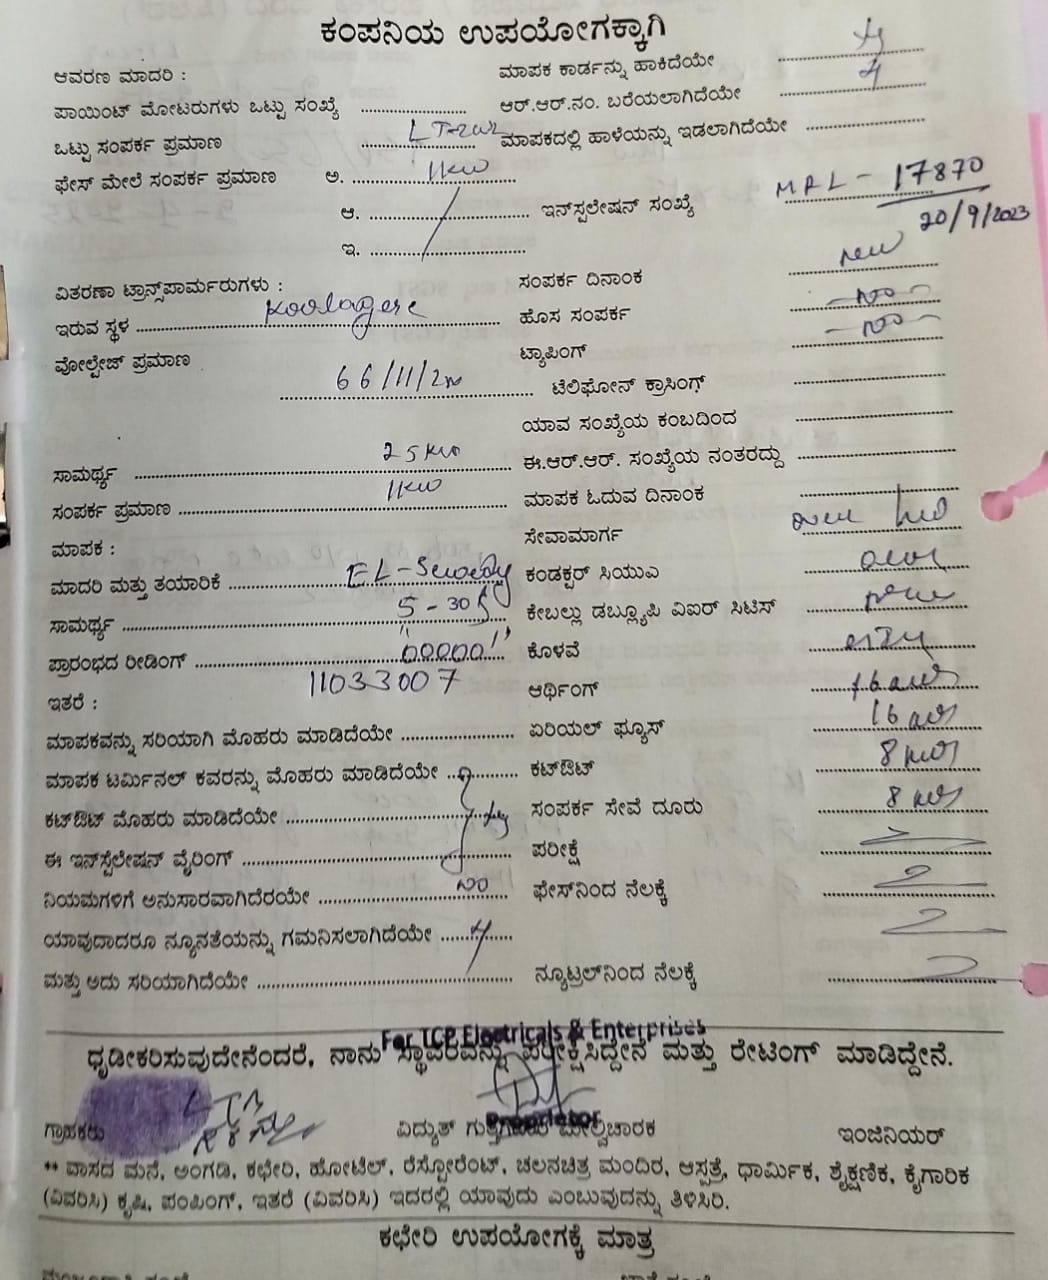 ಕಂಪನಿಯ ಉಪಯೋಗಕ್ಕಾಗಿ
ಆವರಣ ಮಾದರಿ :
ಪಾಯಿಂಟ್ ಮೋಟರುಗಳು ಒಟ್ಟು ಸಂಖ್ಯೆ
ಒಟ್ಟು ಸಂಪರ್ಕ ಪ್ರಮಾಣ
ಫೇಸ್ ಮೇಲೆ ಸಂಪರ್ಕ ಪ್ರಮಾಣ ಅ. 1KW
ಆ.
ಇ.
ವಿತರಣಾ ಟ್ರಾನ್ಸ್‌ಪಾರ್ಮರುಗಳು :
ಇರುವ ಸ್ಥಳ Koolagere
ವೋಲ್ಟೇಜ್ ಪ್ರಮಾಣ
66/11/
ಸಾಮರ್ಥ್ಯ 25
ಸಂಪರ್ಕ ಪ್ರಮಾಣ 1KW
ಮಾಪಕ :
ಮಾದರಿ ಮತ್ತು ತಯಾರಿಕೆ EL-Sewedy
ಸಾಮರ್ಥ್ಯ 5-30
ಪ್ರಾರಂಭದ ರೀಡಿಂಗ್ 00000
11033007
ಇತರೆ :
ಮಾಪಕವನ್ನು ಸರಿಯಾಗಿ ಮೊಹರು ಮಾಡಿದೆಯೇ
ಮಾಪಕ ಟರ್ಮಿನಲ್ ಕವರನ್ನು ಮೊಹರು ಮಾಡಿದೆಯೇ
ಕಟ್‌ಔಟ್ ಮೊಹರು ಮಾಡಿದೆಯೇ
ಈ ಇನ್‌ಸ್ಟೆಲೇಷನ್ ವೈರಿಂಗ್
ನಿಯಮಗಳಿಗೆ ಅನುಸಾರವಾಗಿದೆರಯೇ no
ಯಾವುದಾದರೂ ನ್ಯೂನತೆಯನ್ನು ಗಮನಿಸಲಾಗಿದೆಯೇ
ಮತ್ತು ಅದು ಸರಿಯಾಗಿದೆಯೇ
ಮಾಪಕ ಕಾರ್ಡನ್ನು ಹಾಕಿದೆಯೇ
ಆರ್.ಆರ್.ನಂ. ಬರೆಯಲಾಗಿದೆಯೇ
ಮಾಪಕದಲ್ಲಿ ಹಾಳೆಯನ್ನು ಇಡಲಾಗಿದೆಯೇ
ಇನ್‌ಸ್ಟಲೇಷನ್ ಸಂಖ್ಯೆ - 17870
20/9/2023
ಸಂಪರ್ಕ ದಿನಾಂಕ new
ಹೊಸ ಸಂಪರ್ಕ -no-
ಟ್ಯಾಪಿಂಗ್ -no-
ಟೆಲಿಫೋನ್ ಕ್ರಾಸಿಂಗ್
ಯಾವ ಸಂಖ್ಯೆಯ ಕಂಬದಿಂದ
ಈ.ಆರ್.ಆರ್. ಸಂಖ್ಯೆಯ ನಂತರದ್ದು
ಮಾಪಕ ಓದುವ ದಿನಾಂಕ
ಸೇವಾಮಾರ್ಗ
ಕಂಡಕ್ಟರ್ ಸಿಯುಎ
ಕೇಬಲ್ಲು ಡಬ್ಲ್ಯೂಪಿ ವಿಐರ್ ಸಿಟಿಸ್
ಕೊಳವೆ
ಆರ್ಥಿಂಗ್ 16
ಏರಿಯಲ್ ಫ್ಯೂಸ್ 16
ಕಟ್‌ಔಟ್ 8
ಸಂಪರ್ಕ ಸೇವೆ ದೂರು 8
ಪರೀಕ್ಷೆ
ಫೇಸ್‌ನಿಂದ ನೆಲಕ್ಕೆ
ನ್ಯೂಟ್ರಲ್‌ನಿಂದ ನೆಲಕ್ಕೆ
For TCP Electricals & Enterprises
ಧೃಡೀಕರಿಸುವುದೇನೆಂದರೆ, ನಾನು ಸ್ಥಾವರವನ್ನು ಪರೀಕ್ಷಿಸಿದ್ದೇನೆ ಮತ್ತು ರೇಟಿಂಗ್ ಮಾಡಿದ್ದೇನೆ.
Proprietor
ಗ್ರಾಹಕರು ವಿದ್ಯುತ್ ಗುತ್ತಿಗೆದಾರ ಮೇಲ್ವಿಚಾರಕ ಇಂಜಿನಿಯರ್
** ವಾಸದ ಮನೆ, ಅಂಗಡಿ, ಕಛೇರಿ, ಹೋಟೆಲ್, ರೆಸ್ಟೋರೆಂಟ್, ಚಲನಚಿತ್ರ ಮಂದಿರ, ಆಸ್ಪತ್ರೆ, ಧಾರ್ಮಿಕ, ಶೈಕ್ಷಣಿಕ, ಕೈಗಾರಿಕ
(ವಿವರಿಸಿ) ಕೃಷಿ, ಪಂಪಿಂಗ್, ಇತರೆ (ವಿವರಿಸಿ) ಇದರಲ್ಲಿ ಯಾವುದು ಎಂಬುವುದನ್ನು ತಿಳಿಸಿರಿ.
ಕಛೇರಿ ಉಪಯೋಗಕ್ಕೆ ಮಾತ್ರ